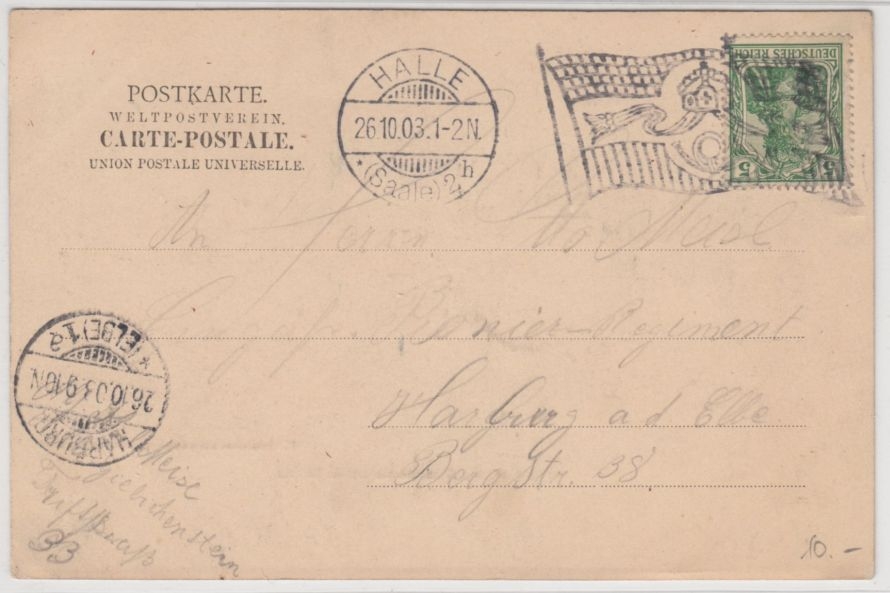 POSTKARTE.
WELTPOSTVEREIN.
CARTE-POSTALE.
UNION POSTALE UNIVERSELLE.
HALLE
26.10.03.1-2N.
* (Saale) 2 h
DEUTSCHES REICH
5 5
An Herrn Meisl
Pionier-Regiment
Harburg a d Elbe
Bergstr. 38
HARBURG
26.10.03.9-10N.
* (ELBE) 1
Meisl
Giebichenstein
33
10.-